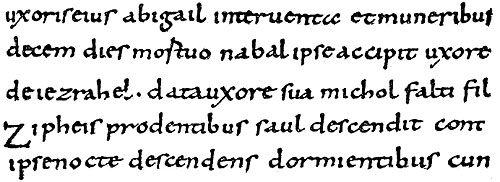 uxoriseius abigail interuentu et muneribus
decem dies mortuo nabal ipse accipit uxore
de iezrahel. data uxore sua michol falti fil
Zipheis prodentibus saul descendit cont
ipse nocte descendens dormientibus cun